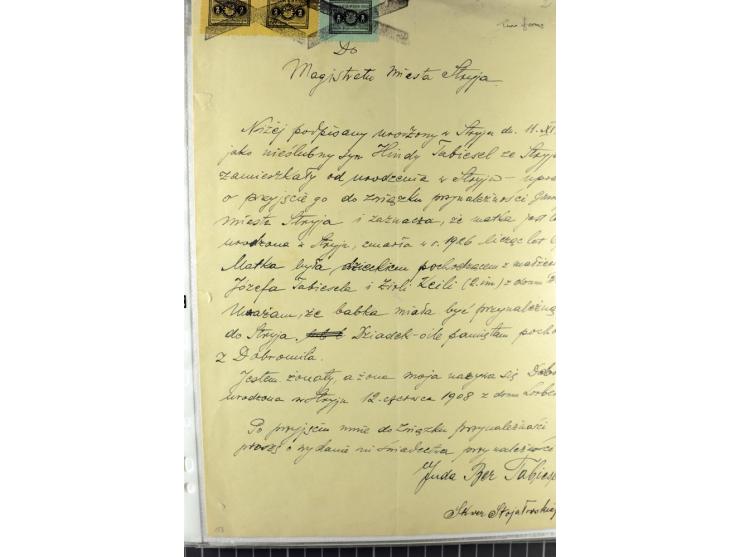 Do
Magistratu miasta Stryja.
Niżej podpisany urodzony w Stryju dn. 11.XI
jako nieślubny syn Hindy Tabiesel ze Stryja
zamieszkały od urodzenia w Stryju - upra
o przyjęcie go do związku przynależności Gmi
miasta Stryja i zaznacza, że matka jest
urodzona w Stryju, zmarła w r. 1926 licząc lat
Matka była dzieckiem pochodzącem z małżeń
Józefa Tabiesela i Zirli Keili (2.im) z domu
Uważam, że babka miała być przynależną
do Stryja. Dziadek - o ile pamiętam pocho
z Dobromila.
Jestem żonaty, a żona moja nazywa się
urodzona w Stryju 12. czerwca 1908 z domu
Po przyjęciu mnie do związku przynależności
proszę o wydanie mi świadectwa przynależności
Juda Ber Tabiese